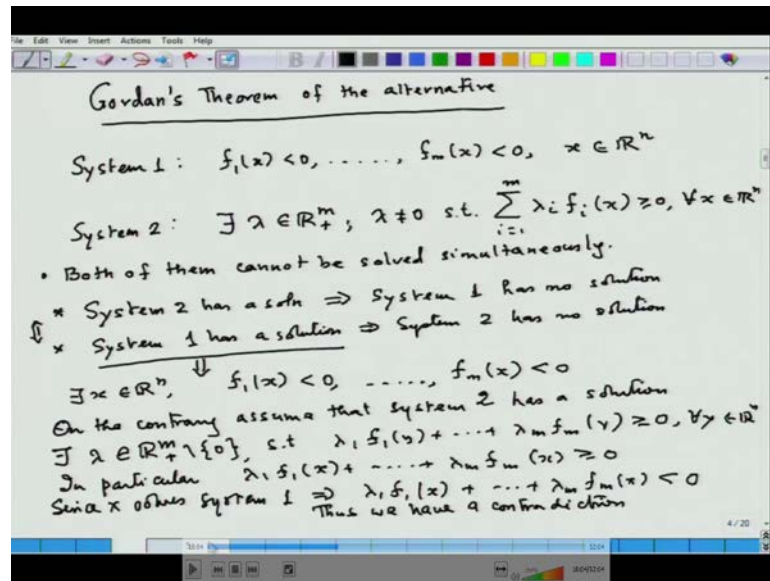 File Edit View Insert Actions Tools Help
Gordan's Theorem of the alternative
System 1 : f₁(x) < 0, ......, fₘ(x) < 0, x ∈ ℝⁿ
System 2 : ∃ λ ∈ ℝ₊ᵐ, λ ≠ 0 s.t. ∑ᵢ₌₁ᵐ λᵢ fᵢ(x) ≥ 0, ∀x ∈ ℝⁿ
• Both of them cannot be solved simultaneously.
* System 2 has a soln ⇒ System 1 has no solution
⇕ * System 1 has a solution ⇒ System 2 has no solution
⇓
∃x ∈ ℝⁿ, f₁(x) < 0, ....., fₘ(x) < 0
On the contrary assume that system 2 has a solution
∃ λ ∈ ℝ₊ᵐ \ {0}, s.t λ₁ f₁(y) + ... + λₘ fₘ(y) ≥ 0, ∀y ∈ ℝⁿ
In particular λ₁ f₁(x) + ..... + λₘ fₘ(x) ≥ 0
Since x solves System 1 ⇒ λ₁ f₁(x) + ... + λₘ fₘ(x) < 0
Thus we have a contradiction
4 / 20